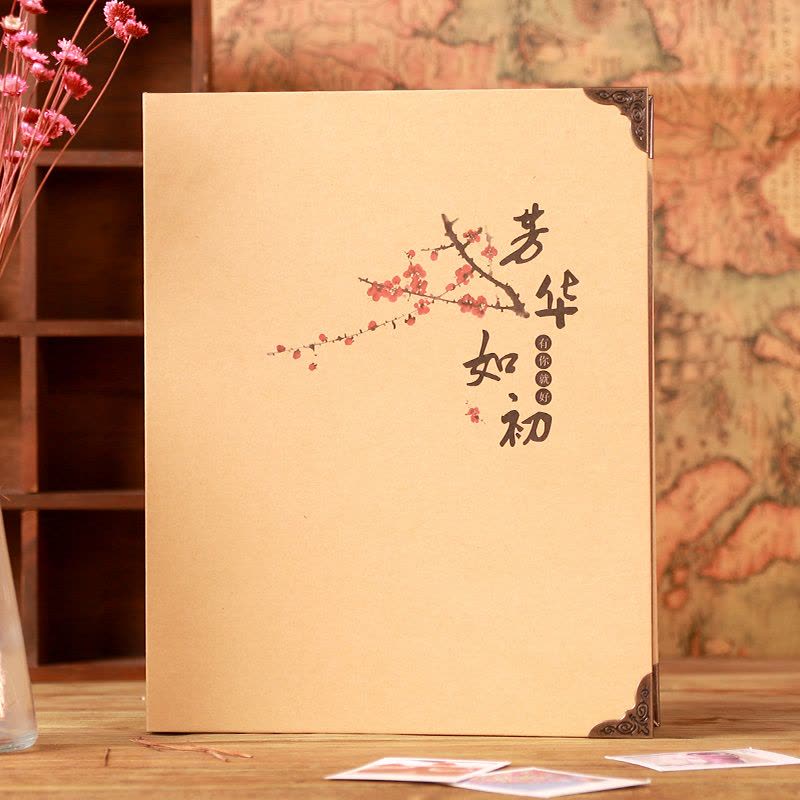 芳华
如初
有你就好